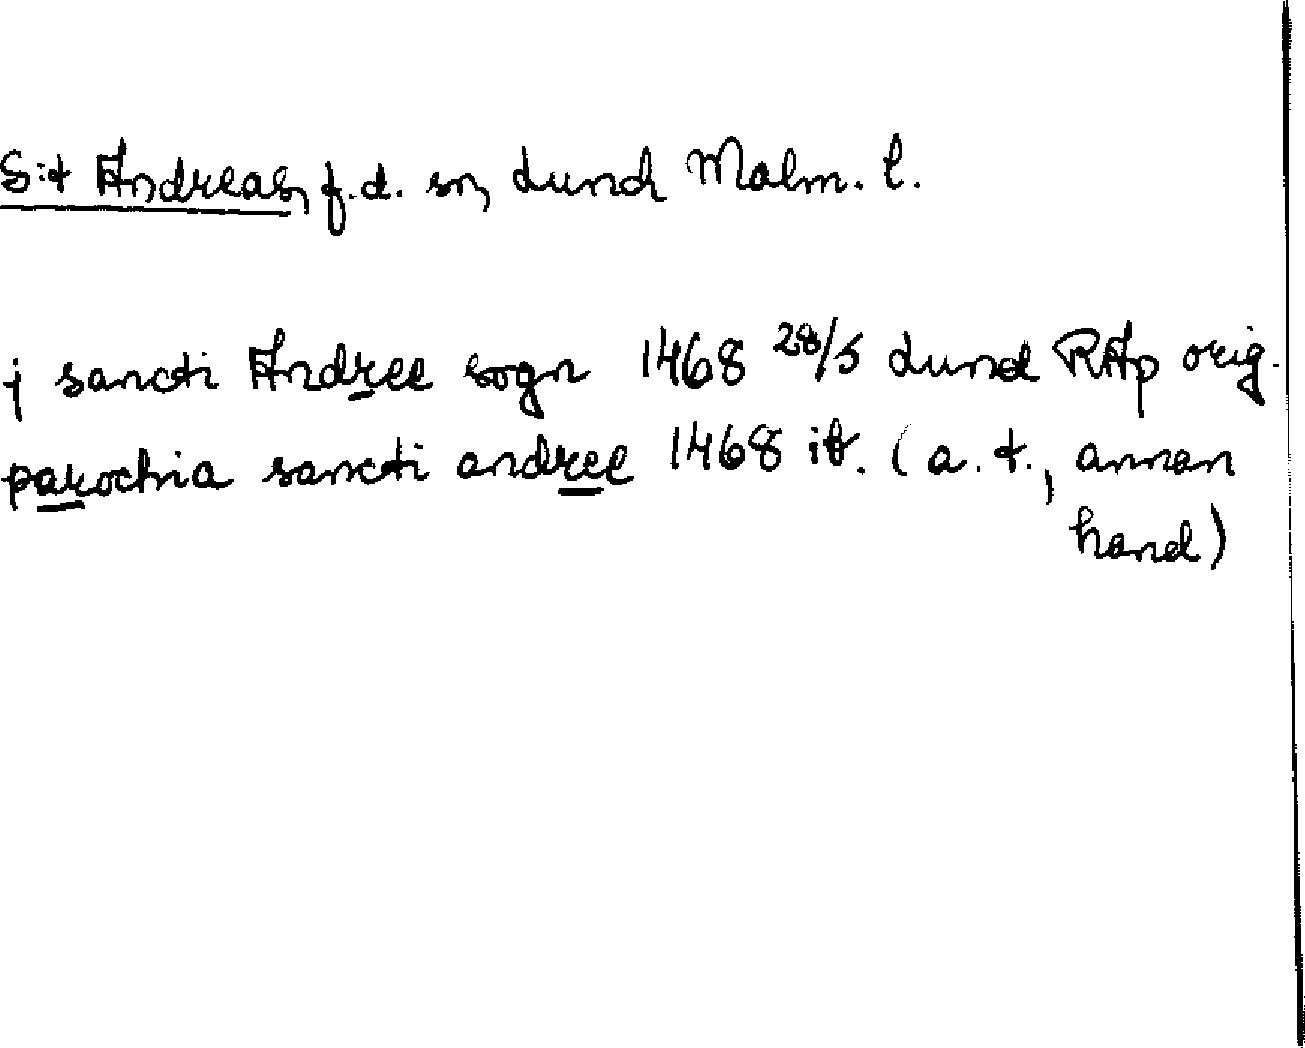 S:t Andreas, f.d. sn, Lund Malm. l.
j sancti Andree sogn 1468 28/5 Lund RAp orig.
parochia sancti andree 1468 ib. (a. t., annan
hand)